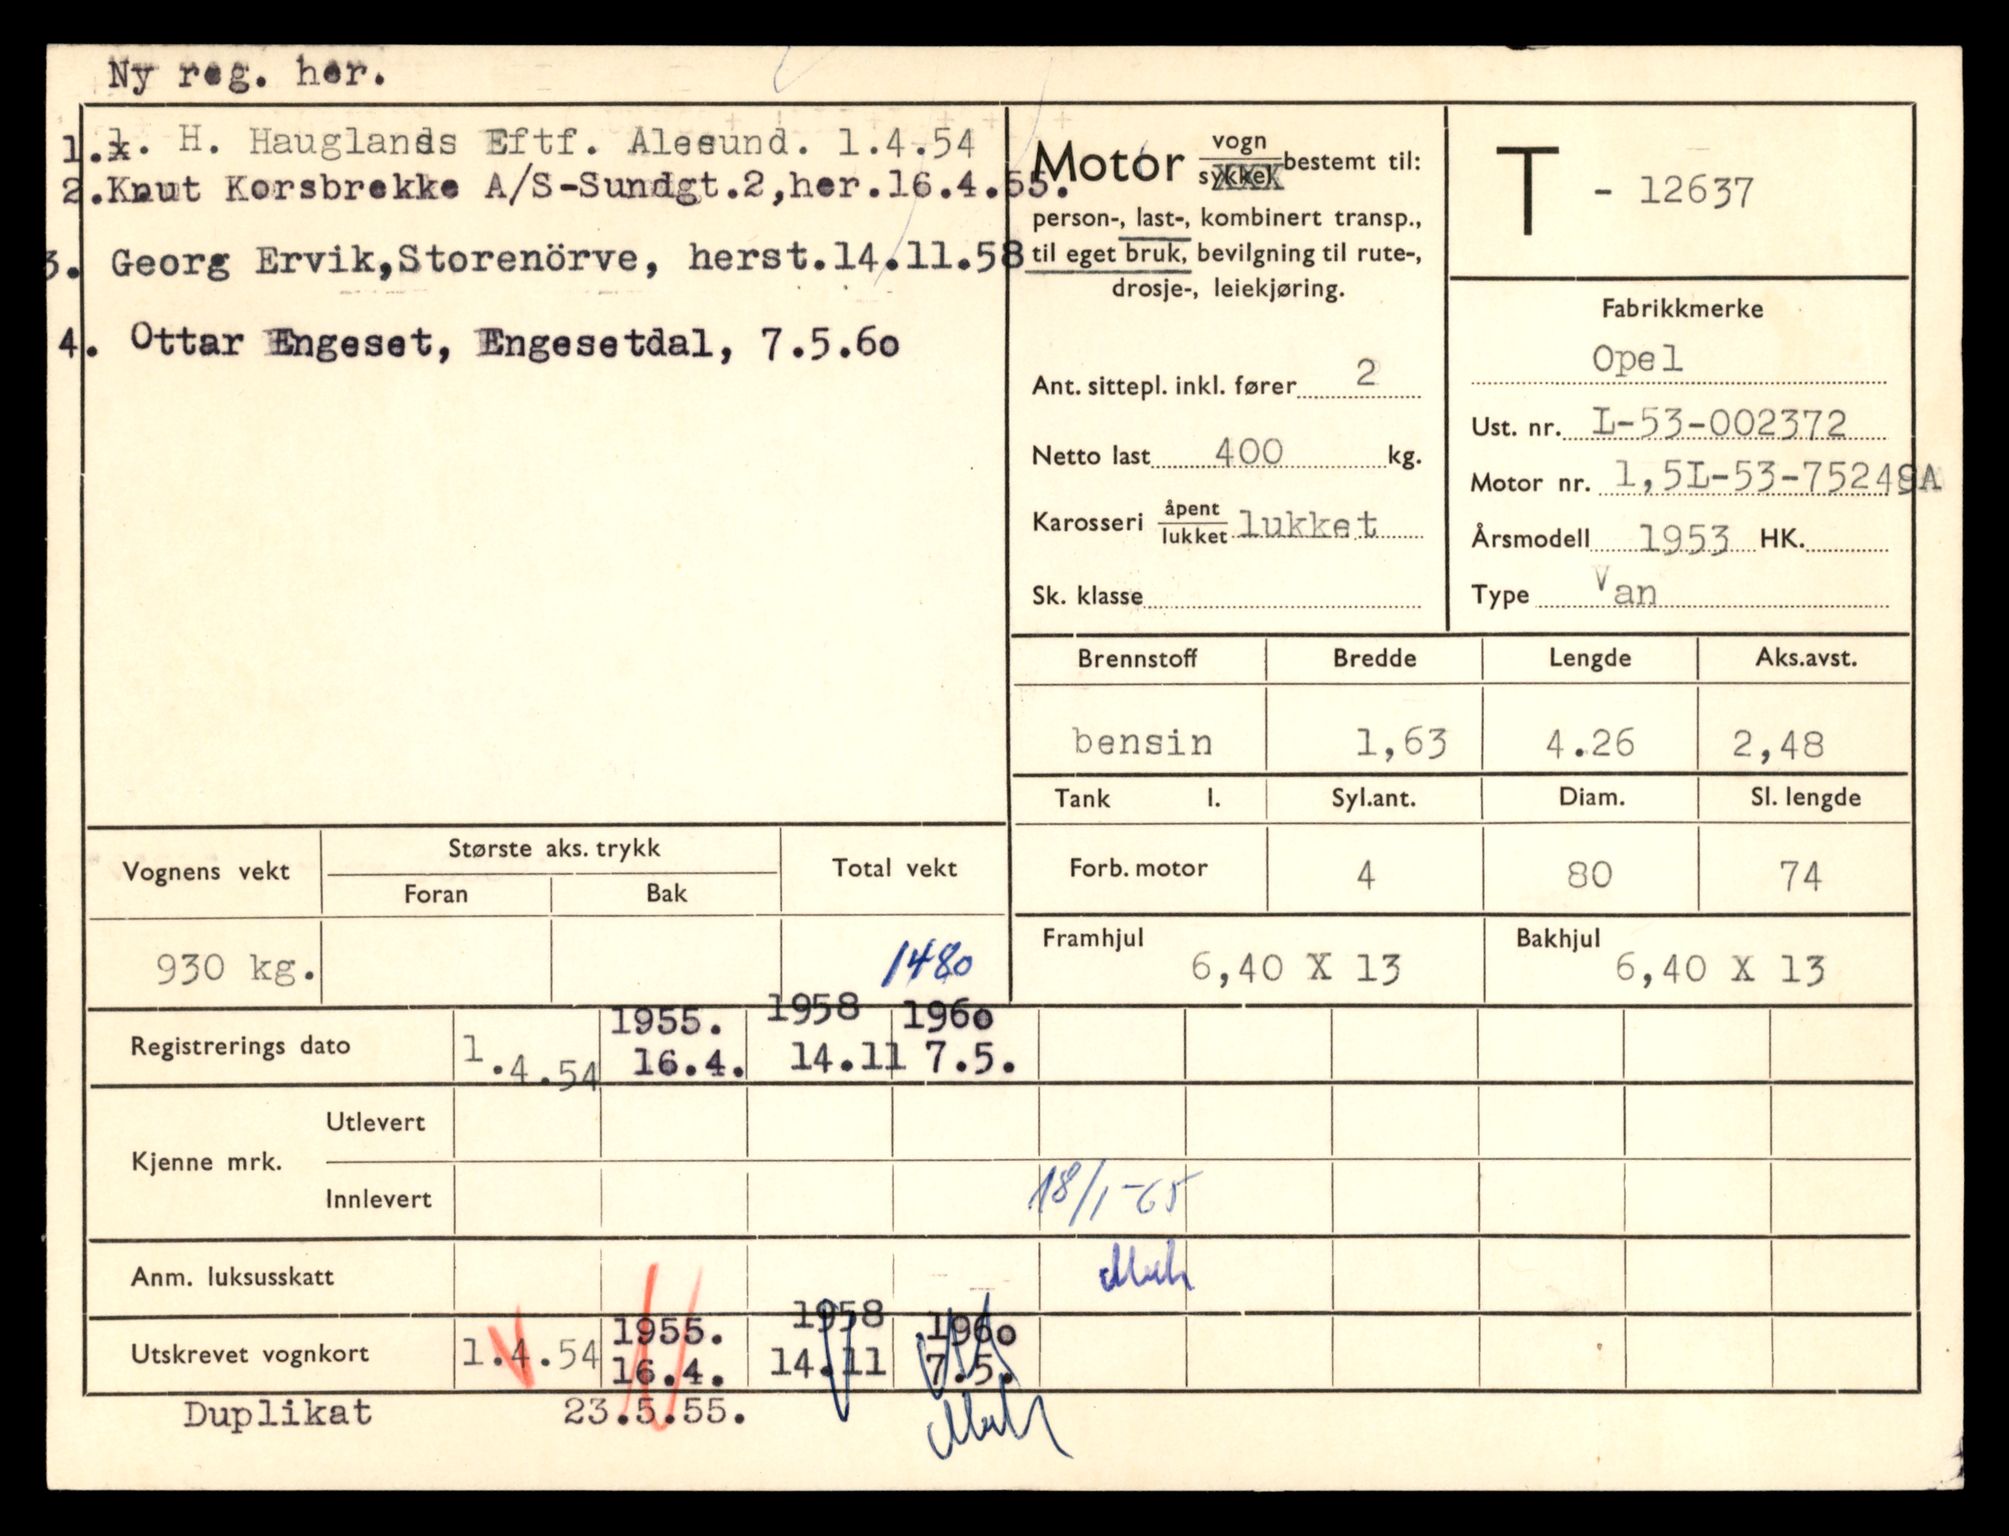 Ny reg. her.
1. H. Hauglands Eftf. Alesund. 1.4.54
2.Knut Korsbrekke A/S-Sundgt.2,her.16.4.55.
3. Georg Ervik,Storenörve, herst.14.11.58
4. Ottar Engeset, Engesetdal, 7.5.60
Motor vogn sykkel bestemt til:
person-, last-, kombinert transp.,
til eget bruk, bevilgning til rute-,
drosje-, leiekjøring.
Ant. sittepl. inkl. fører 2
Netto last 400 kg.
Karosseri åpent lukket lukket
Sk. klasse
T - 12637
Fabrikkmerke
Opel
Ust. nr. L-53-002372
Motor nr. 1,5L-53-75249A
Årsmodell 1953 HK.
Type Van
Brennstoff Bredde Lengde Aks.avst.
bensin 1,63 4.26 2,48
Tank l. Syl.ant. Diam. Sl. lengde
Forb. motor 4 80 74
Framhjul 6,40 X 13 Bakhjul 6,40 X 13
Vognens vekt Største aks. trykk Total vekt
Foran Bak
930 kg. 1480
1955. 1958 1960
Registrerings dato 1.4.54 16.4. 14.11 7.5.
Kjenne mrk. Utlevert
Innlevert 18/1-65
Anm. luksusskatt
1955. 1958 1960
Utskrevet vognkort 1.4.54 16.4. 14.11 7.5.
Duplikat 23.5.55.